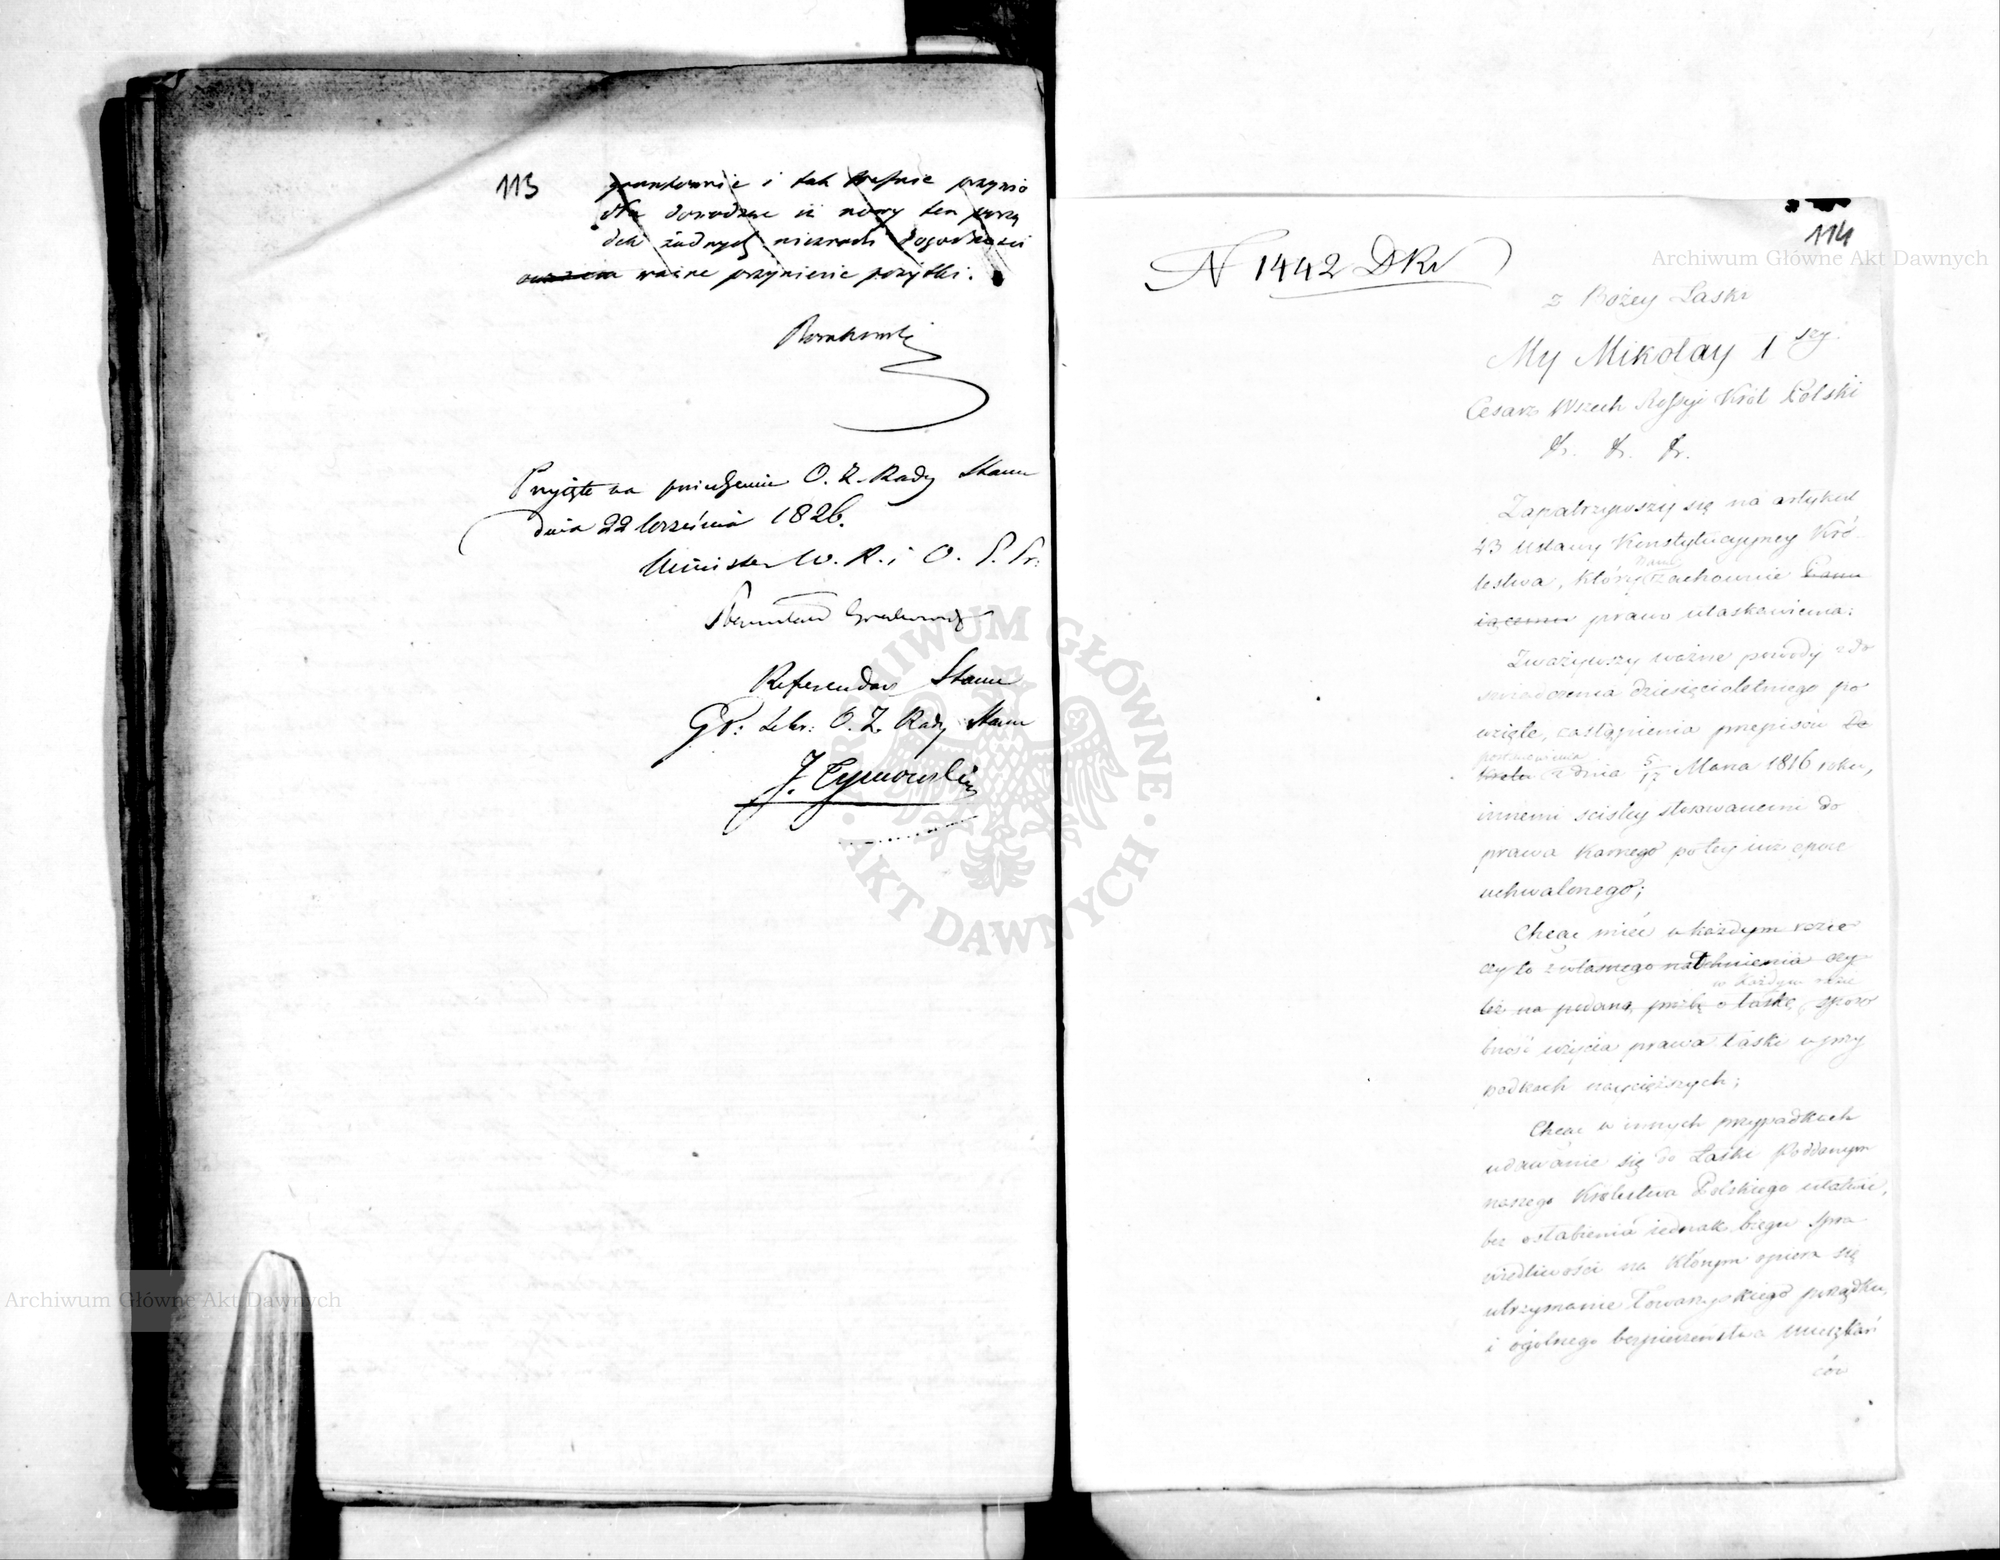 113
i tak trafnie przynio
dowodząc iż nowy ten porzą
dek żadnych
ważne przyniesie pożytki.
Przyięte na posiedzeniu O. Z. Rady Stanu
dnia 22 Września 1826.
Minister W. R. i O. P. Pr.
Stanisław Grabowski
Referendarz Stanu
Gł: Sekr: O. Z. Rady Stanu
J. Tymowski
114
N 1442 DKr
z Bożey Łaski
My Mikołay I szy.
Cesarz Wszech Rossyi Król Polski
&. &. &.
Zapatrzywszy się na artykuł
43 Ustawy Konstytucyyney Kró-
lestwa, który Nam zachowuie Panu
iącemu prawo ułaskawienia:
Zważywszy ważne powody z do
świadczenia dziesięcioletniego po
wzięte, zastąpienia przepisów De
postanowienia
kretu z dnia 5/17 Marca 1816 roku,
innemi ściśley stosowanemi do
prawa Karnego po tey iuż epoce
uchwalonego;
Chcąc mieć w każdym razie
czy to z własnego natchnienia czy
w każdym razie
też na podaną prośbę o łaskę, sposo
bność użycia prawa łaski w przy
padkach naycięższych;
Chcąc w innych przypadkach
udawanie się do Łaski Poddanym
naszego Królestwa Polskiego ułatwić,
bez osłabienia iednak biegu spra
wiedliwości na którym opiera się
utrzymanie Towarzyskiego porządku,
i ogólnego bezpieczeństwa mieszkań
ców
Archiwum Główne Akt Dawnych
Archiwum Główne Akt Dawnych
ARCHIWUM GŁÓWNE
AKT DAWNYCH